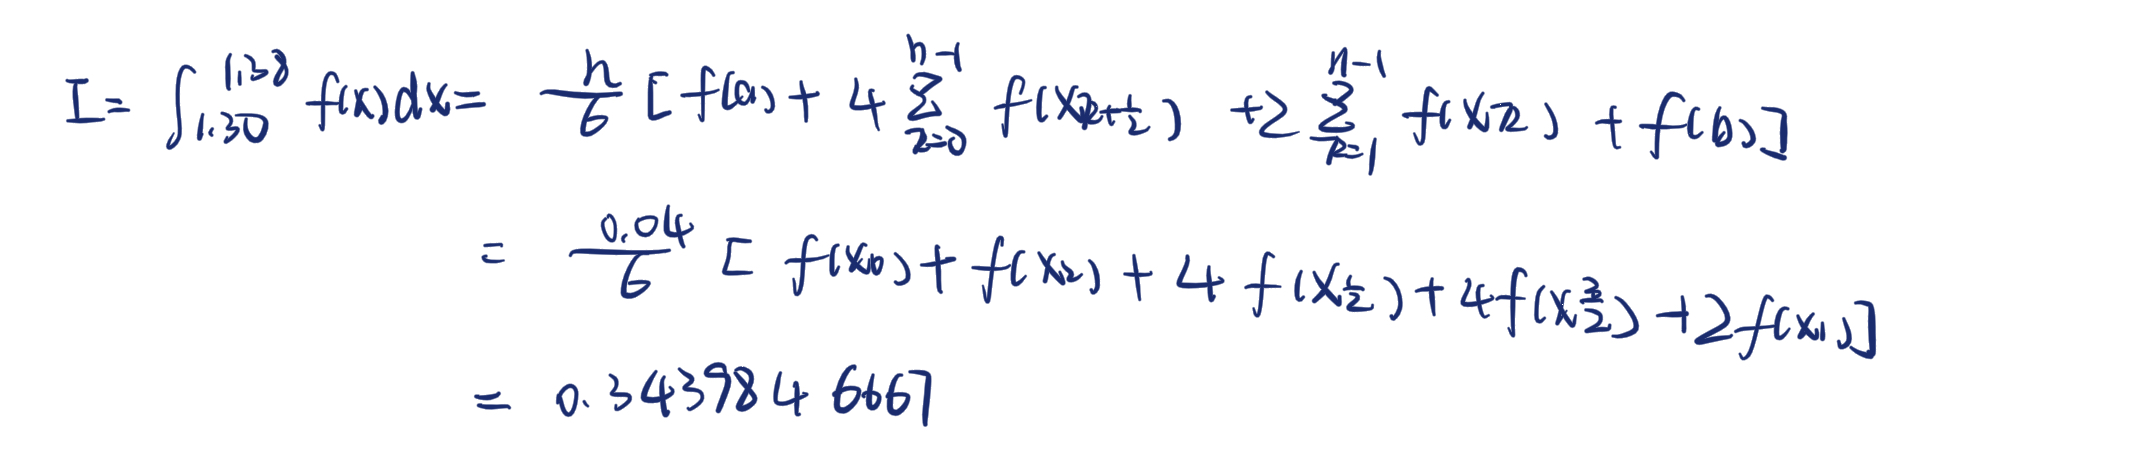 I = ∫_{1.30}^{1.38} f(x)dx = \frac{h}{6} [ f(a) + 4 \sum_{k=0}^{n-1} f(x_{k+\frac{1}{2}}) + 2 \sum_{k=1}^{n-1} f(x_k) + f(b) ]
= \frac{0.04}{6} [ f(x_0) + f(x_2) + 4 f(x_{\frac{1}{2}}) + 4 f(x_{\frac{3}{2}}) + 2 f(x_1) ]
= 0.3439846667